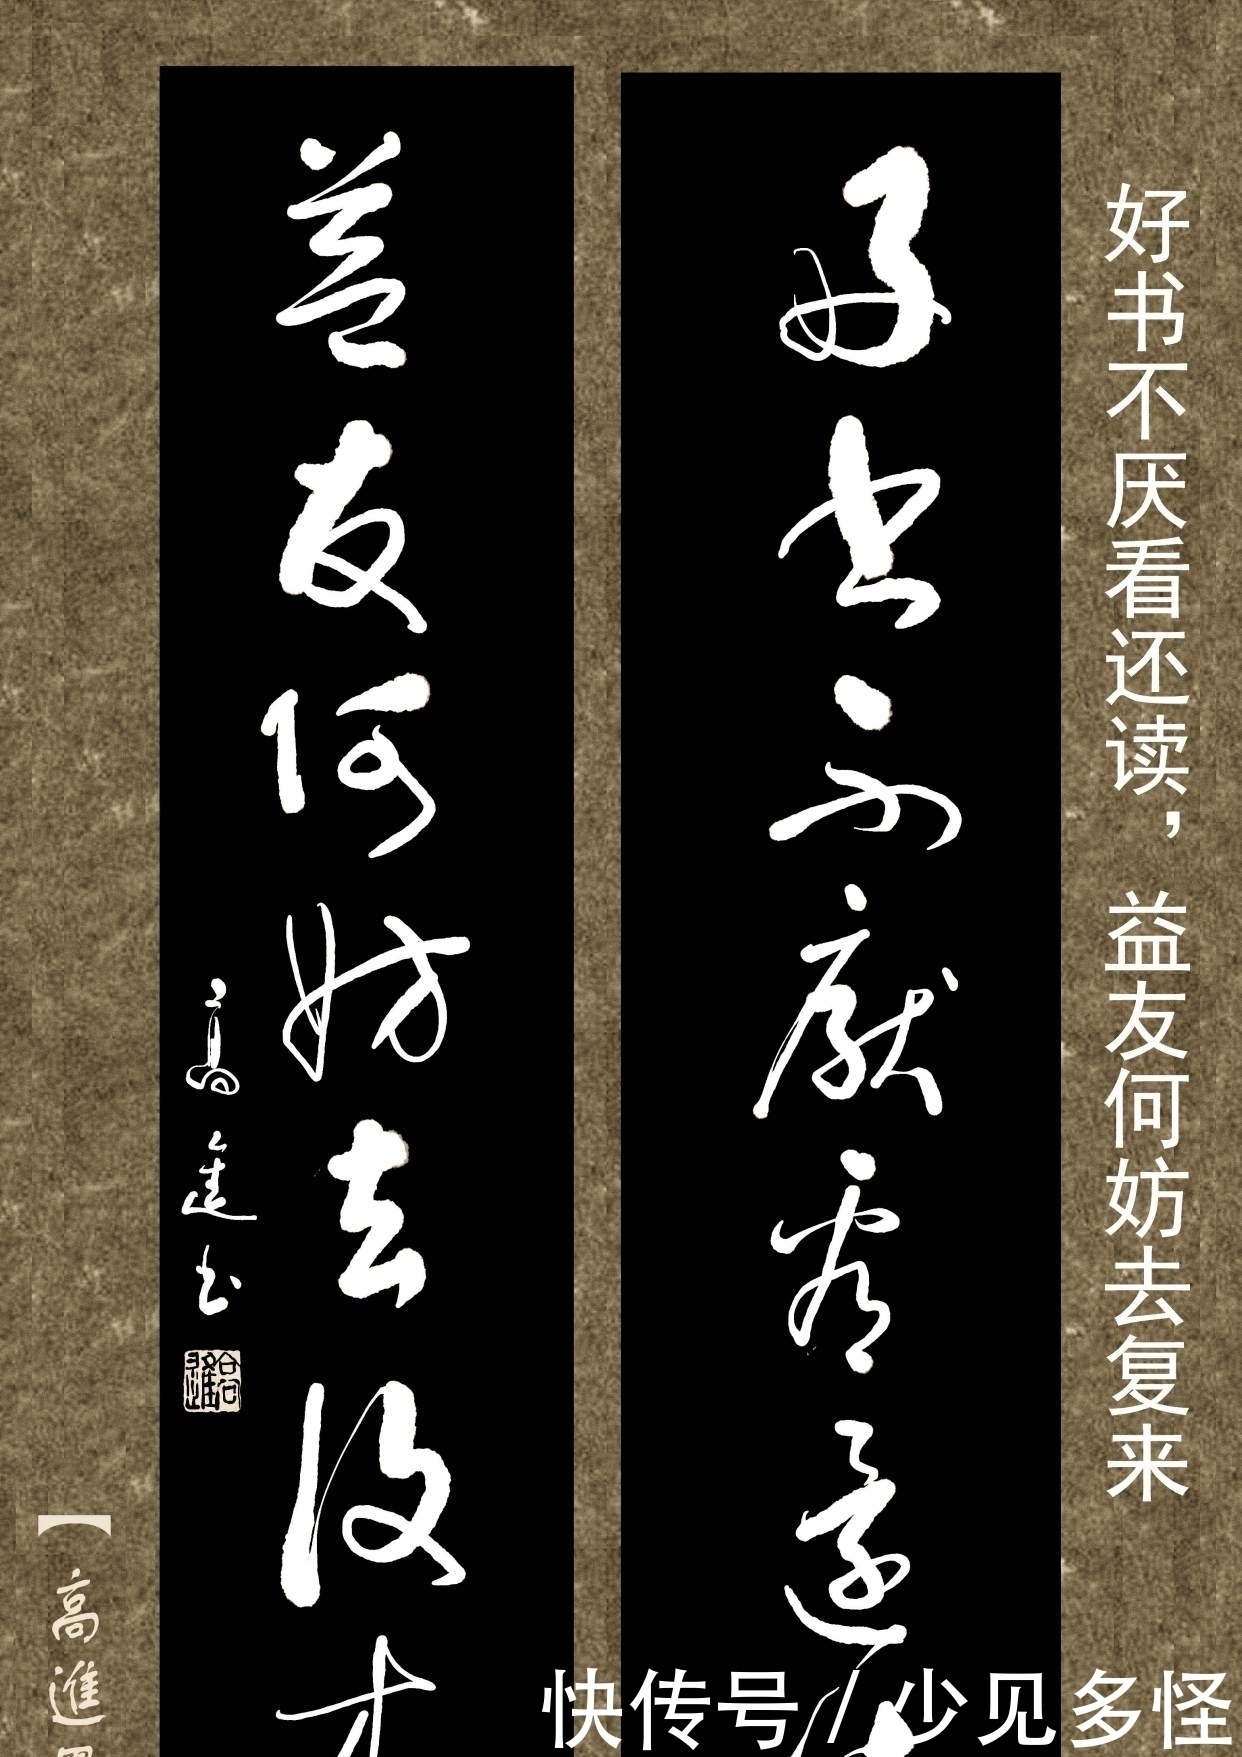 好书不厌看还读，益友何妨去复来
好書不厭看還
益友何妨去復来
高進书
【高進
快传号/少见多怪